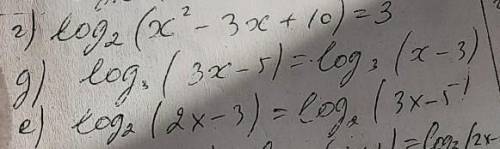 г) log₂(x² - 3x + 10) = 3
д) log₃(3x - 5) = log₃(x - 3)
е) log₂(2x - 3) = log₂(3x - 5)
) = log₂(2x -